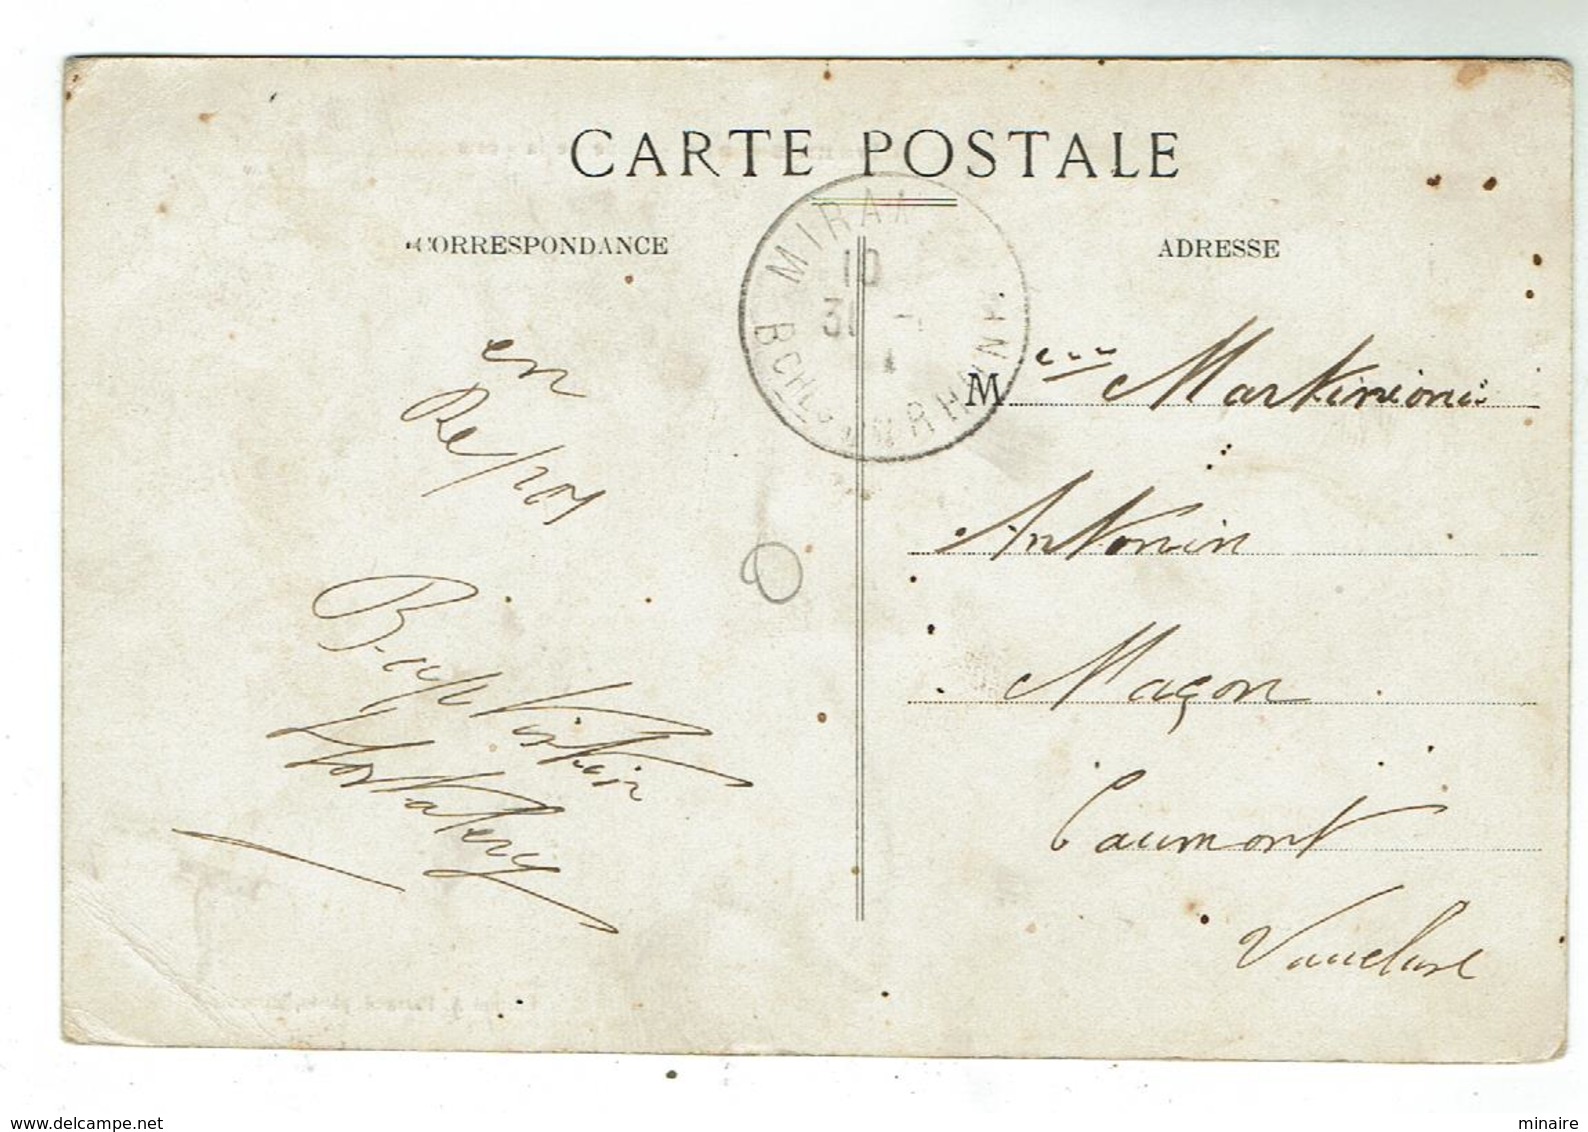 CARTE POSTALE
CORRESPONDANCE
ADRESSE
MIRAM
10
BCHES DU RHONE
en
Repos
Baptistin
Hortalery
Meur Martinioni
Antonin
Maçon
Caumont
Vaucluse
www.delcampe.net
minaire